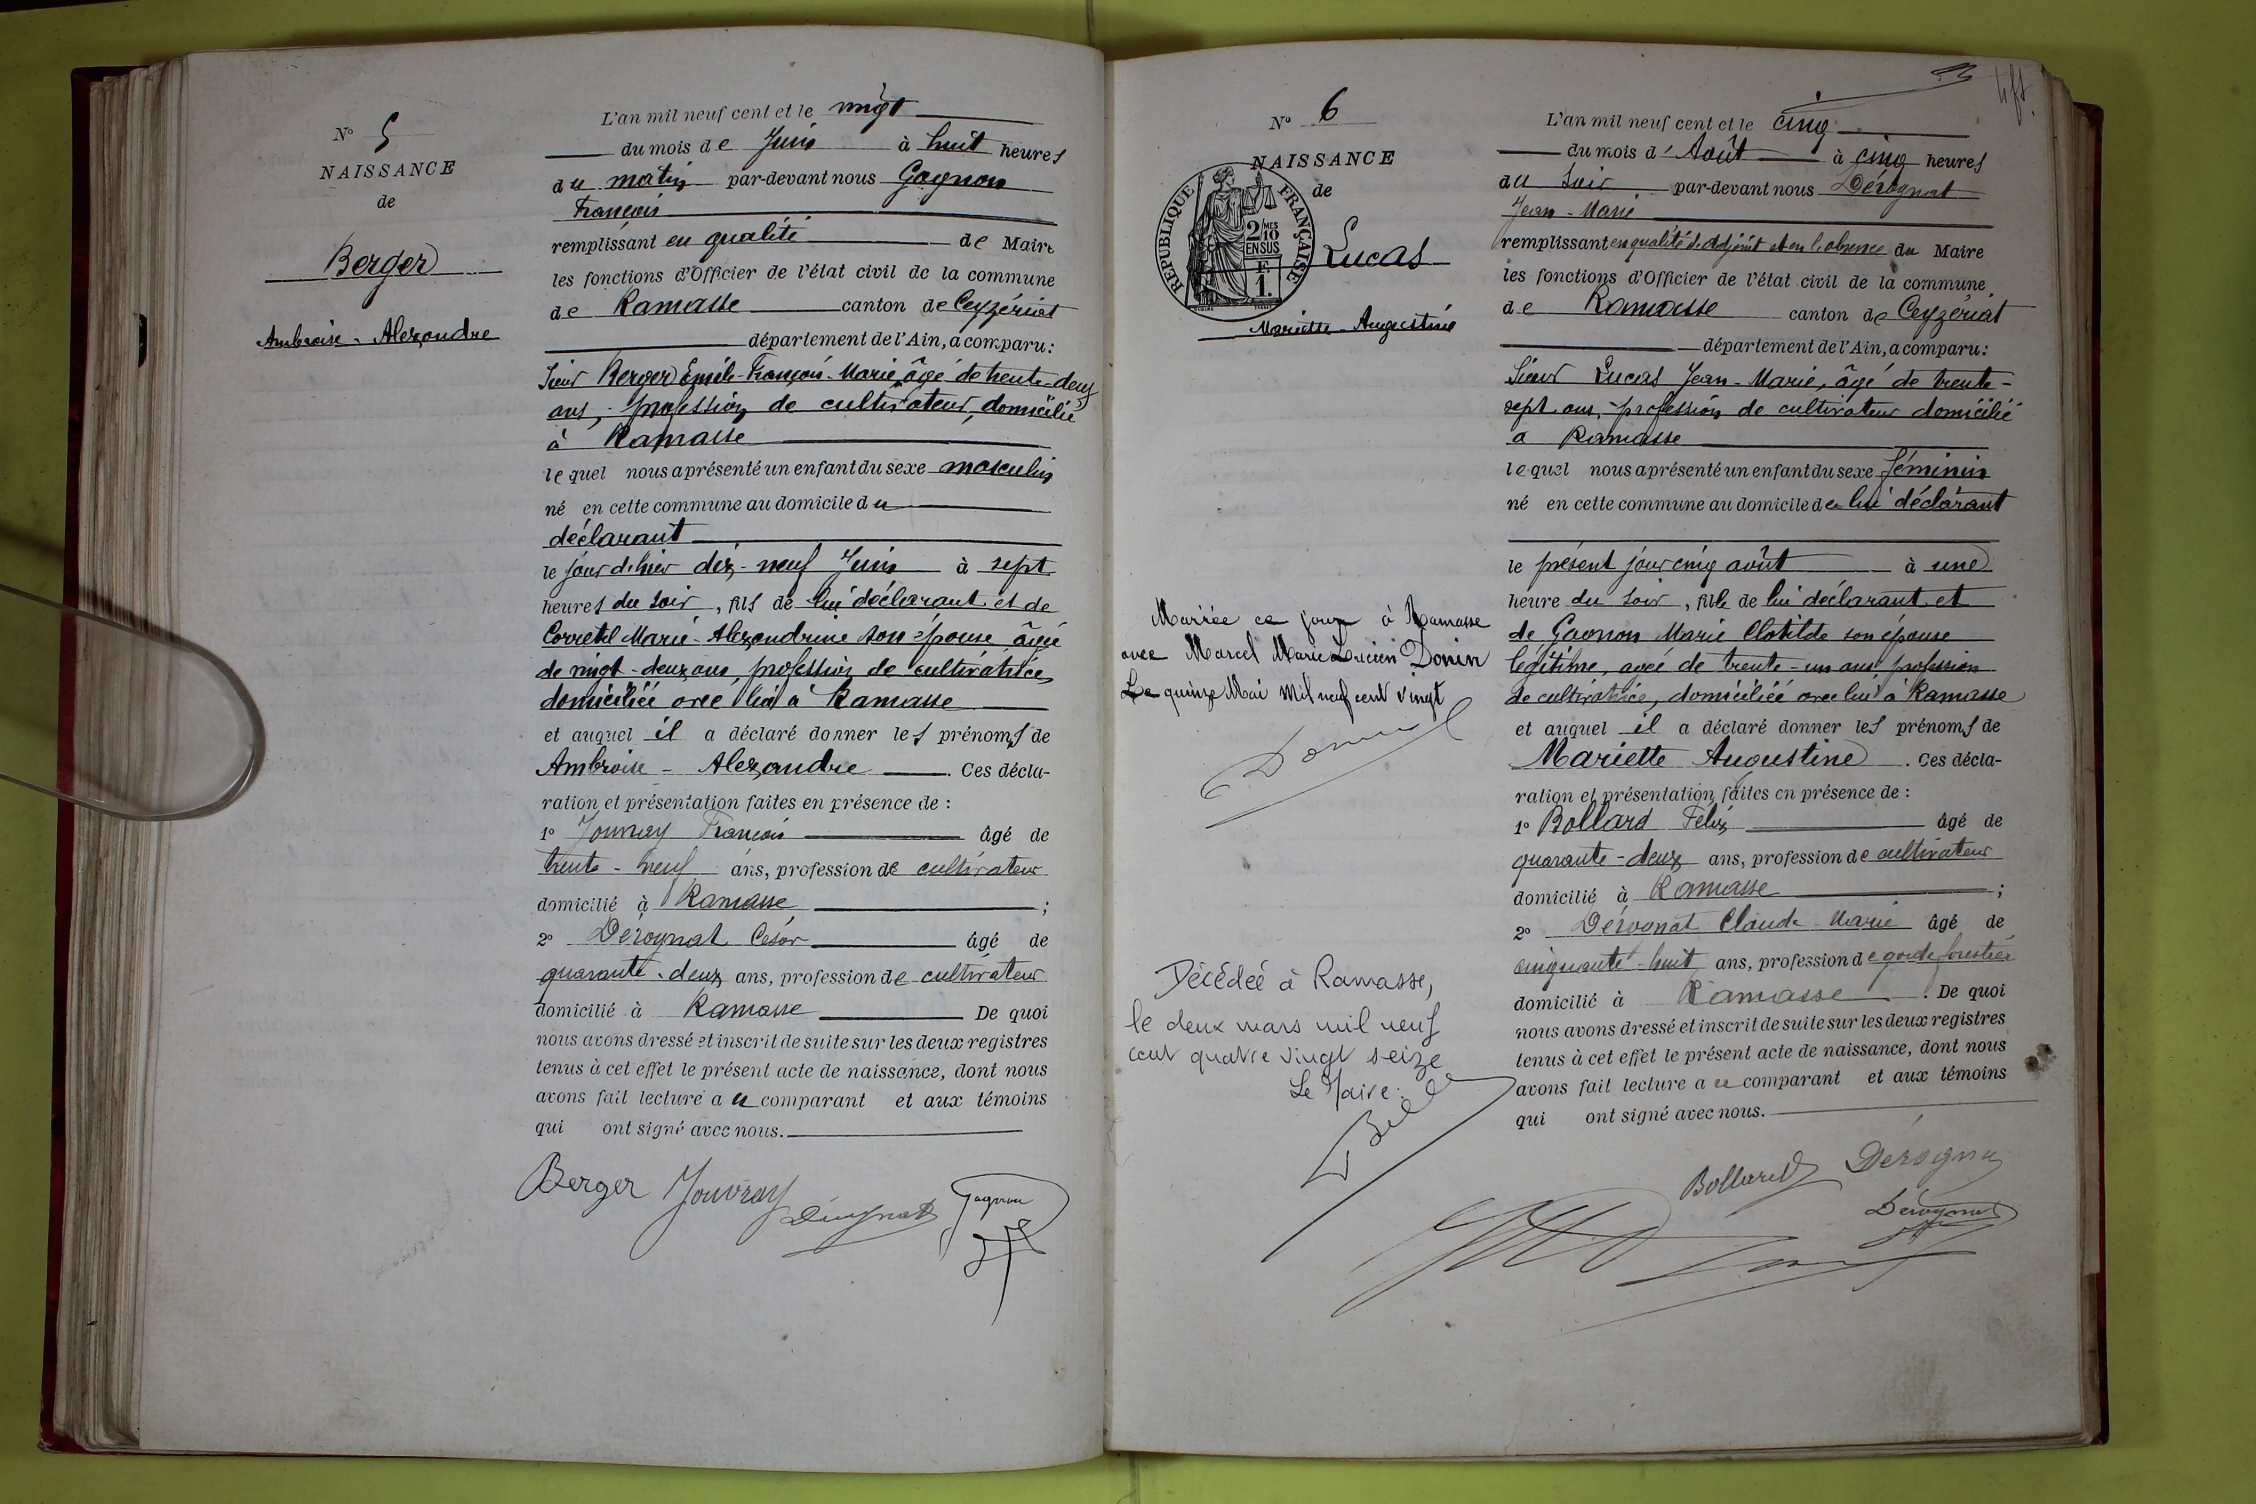 N° 5
NAISSANCE
de
Berger
Ambroise - Alexandre
L'an mil neuf cent et le vingt
du mois de Juin à huit heures
du matin par-devant nous Gagnon
François
remplissant en qualité de Maire
les fonctions d'Officier de l'état civil de la commune
de Ramasse canton de Ceyzériat
département de l'Ain, a comparu:
Sieur Berger Emile-François-Marie, âgé de trente-deux
ans, profession de cultivateur, domicilié
à Ramasse
lequel nous a présenté un enfant du sexe masculin
né en cette commune au domicile du
déclarant
le jour d'hier dix-neuf Juin à sept
heures du soir, fils de lui déclarant et de
Corretel Marie-Alexandrine son épouse âgée
de vingt-deux ans, profession de cultivatrice,
domiciliée avec lui à Ramasse
et auquel il a déclaré donner les prénoms de
Ambroise - Alexandre. Ces décla-
ration et présentation faites en présence de :
1° Jouvray François âgé de
trente-neuf ans, profession de cultivateur
domicilié à Ramasse ;
2° Dérognat César âgé de
quarante-deux ans, profession de cultivateur
domicilié à Ramasse De quoi
nous avons dressé et inscrit de suite sur les deux registres
tenus à cet effet le présent acte de naissance, dont nous
avons fait lecture au comparant et aux témoins
qui ont signé avec nous.
Berger Jouvray Dérognat Gagnon
N° 6
NAISSANCE
de
RÉPUBLIQUE FRANÇAISE
2/10MES
EN SUS
F.
1.
Lucas
Mariette - Augustine
Mariée ce jour à Ramasse
avec Marcel Marie Lucien Donin
Le quinze Mai mil neuf cent vingt
Décédée à Ramasse,
le deux mars mil neuf
cent quatre vingt seize
Le Maire:
L'an mil neuf cent et le cinq
du mois d'Août à cinq heures
du soir par-devant nous Dérognat
Jean-Marie
remplissant en qualité d'adjoint et en l'absence du Maire
les fonctions d'Officier de l'état civil de la commune
de Ramasse canton de Ceyzériat
département de l'Ain, a comparu:
Sieur Lucas Jean-Marie, âgé de trente-
sept ans, profession de cultivateur domicilié
a Ramasse
lequel nous a présenté un enfant du sexe féminin
né en cette commune au domicile de lui déclarant
le présent jour cinq août à une
heure du soir, fille de lui déclarant et
de Gagnon Marie Clotilde son épouse
légitime, agée de trente-un ans, profession
de cultivatrice, domiciliée avec lui à Ramasse
et auquel il a déclaré donner les prénoms de
Mariette Augustine. Ces décla-
ration et présentation faites en présence de :
1° Bollard Félix âgé de
quarante-deux ans, profession de cultivateur
domicilié à Ramasse ;
2° Dérognat Claude-Marie âgé de
cinquante-huit ans, profession de garde forestier
domicilié à Ramasse. De quoi
nous avons dressé et inscrit de suite sur les deux registres
tenus à cet effet le présent acte de naissance, dont nous
avons fait lecture au comparant et aux témoins
qui ont signé avec nous.
Bollard Dérognat
Dérognat